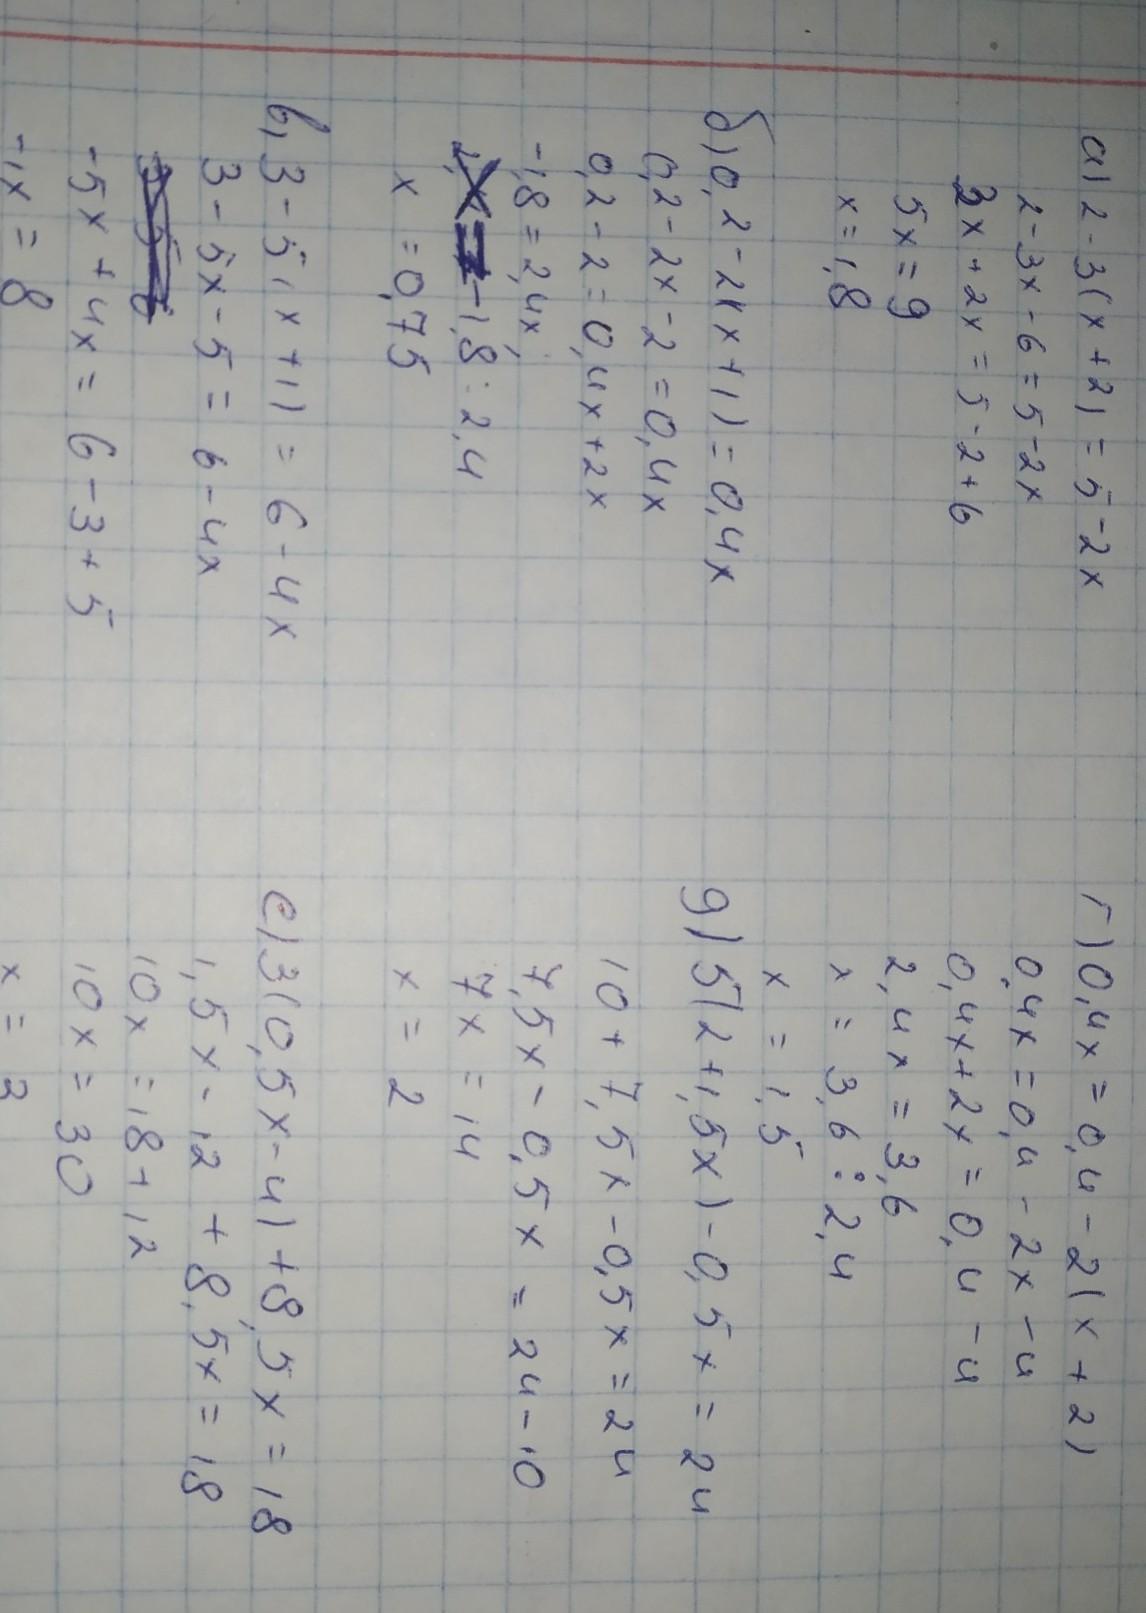 а) 2-3(x+2)=5-2x
2-3x-6=5-2x
3x+2x=5-2+6
5x=9
x=1,8
б) 0,2-2(x+1)=0,4x
0,2-2x-2=0,4x
0,2-2=0,4x+2x
-1,8=2,4x
-1,8:2,4
x=0,75
в) 3-5(x+1)=6-4x
3-5x-5=6-4x
-5x+4x=6-3+5
-1x=8
г) 0,4x=0,4-2(x+2)
0,4x=0,4-2x-4
0,4x+2x=0,4-4
2,4x=3,6
x=3,6:2,4
x=1,5
д) 5(2+1,5x)-0,5x=24
10+7,5x-0,5x=24
7,5x-0,5x=24-10
7x=14
x=2
е) 3(0,5x-4)+8,5x=18
1,5x-12+8,5x=18
10x=18+12
10x=30
x=3